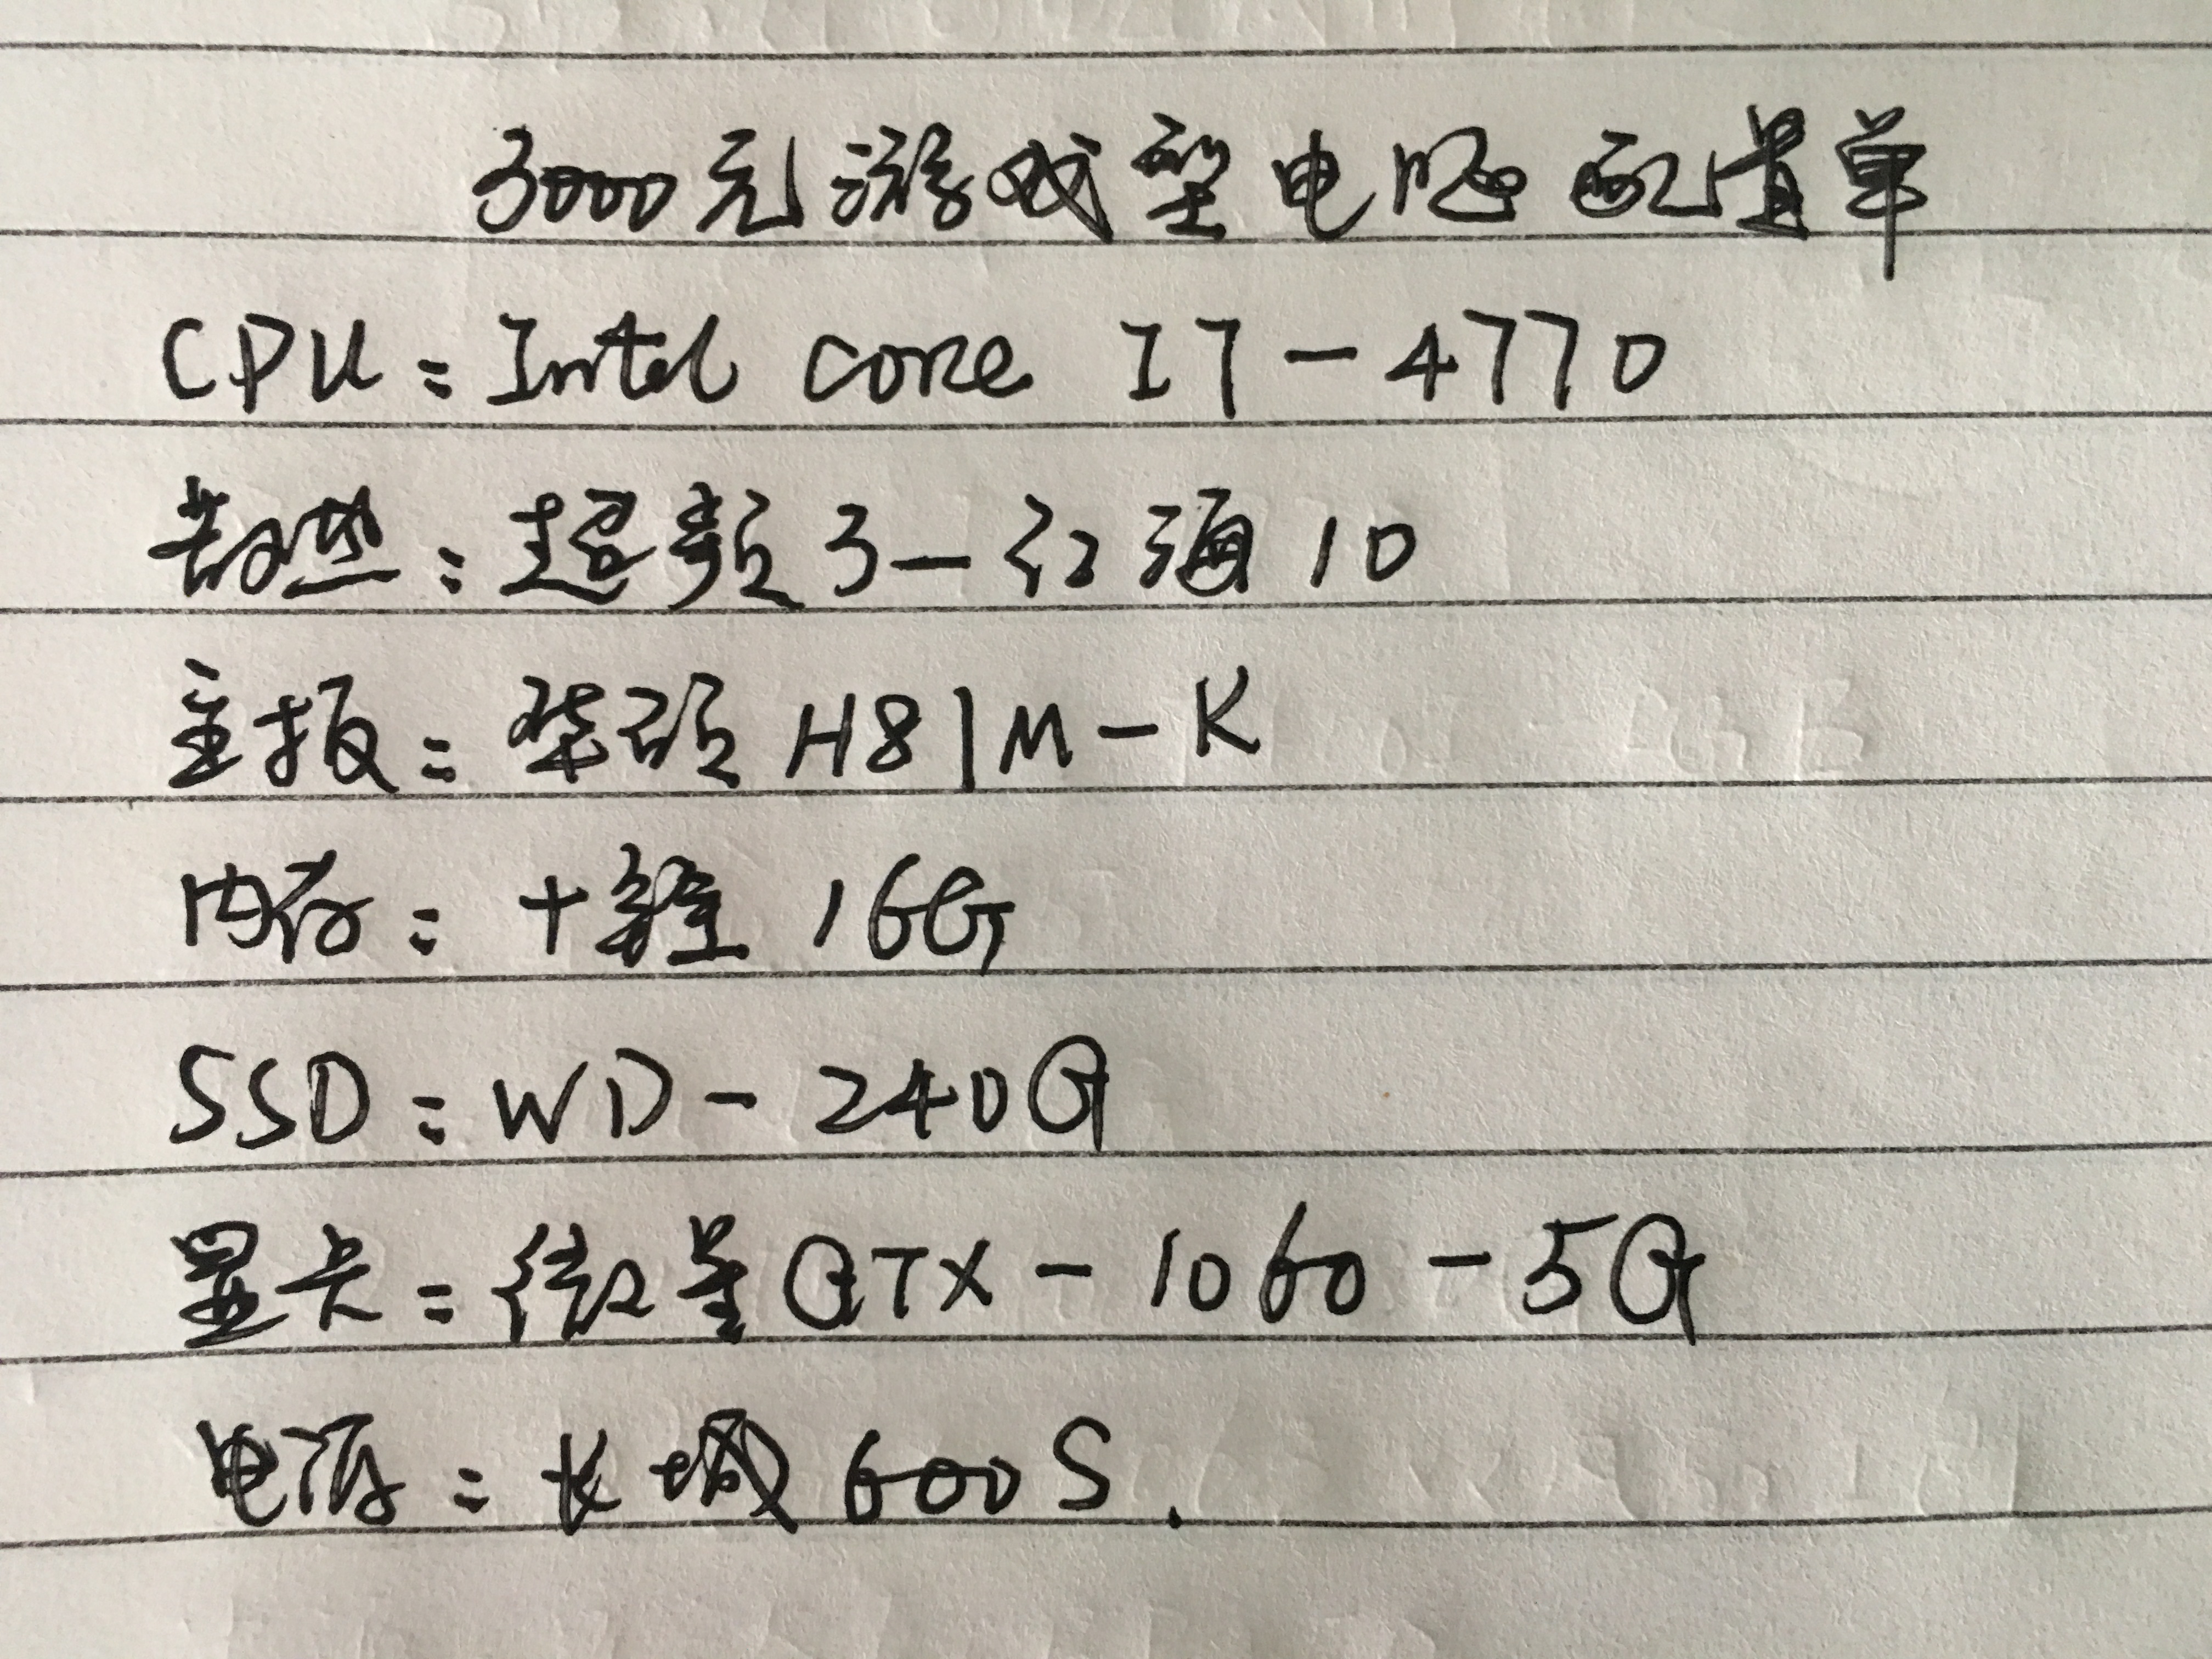 3000元游戏型电脑配置单
CPU：Intel core I7-4770
散热：超频3-红海10
主板：华硕H81M-K
内存：十铨 16G
SSD：WD-240G
显卡：微星GTX-1060-5G
电源：长城600S.